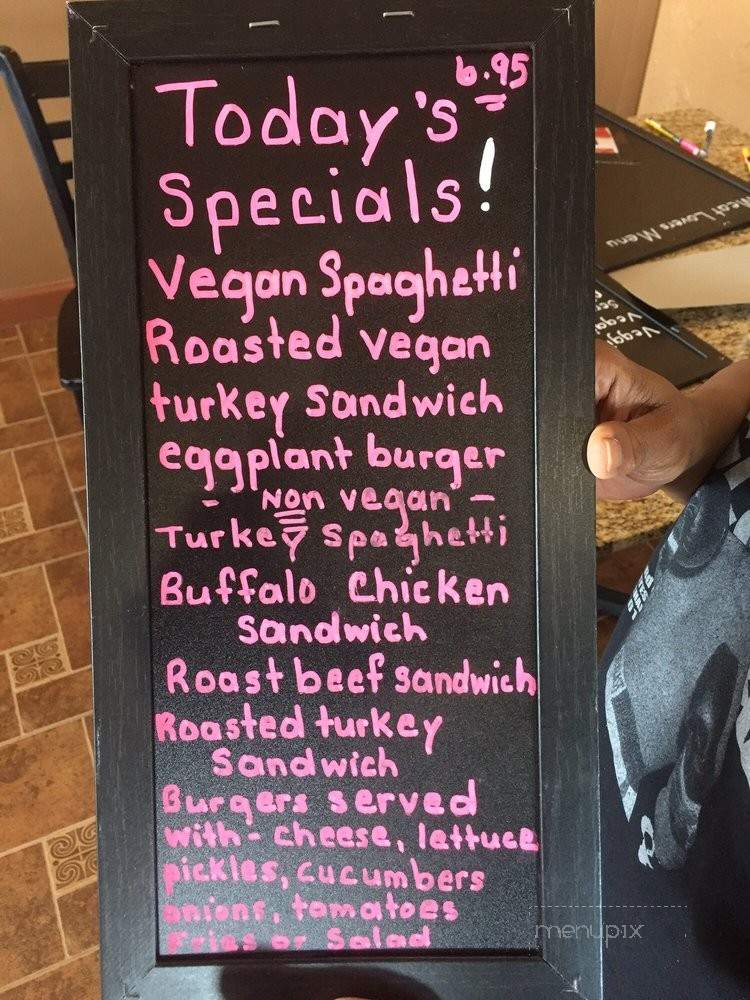 6.95
Today's
Specials!
Vegan Spaghetti
Roasted vegan
turkey Sandwich
eggplant burger
- Non vegan -
Turkey Spaghetti
Buffalo Chicken
Sandwich
Roast beef sandwich
Roasted turkey
Sandwich
Burgers served
with - cheese, lettuce
pickles, cucumbers
onions, tomatoes
Fries or Salad
Meat Lovers Menu
menupix